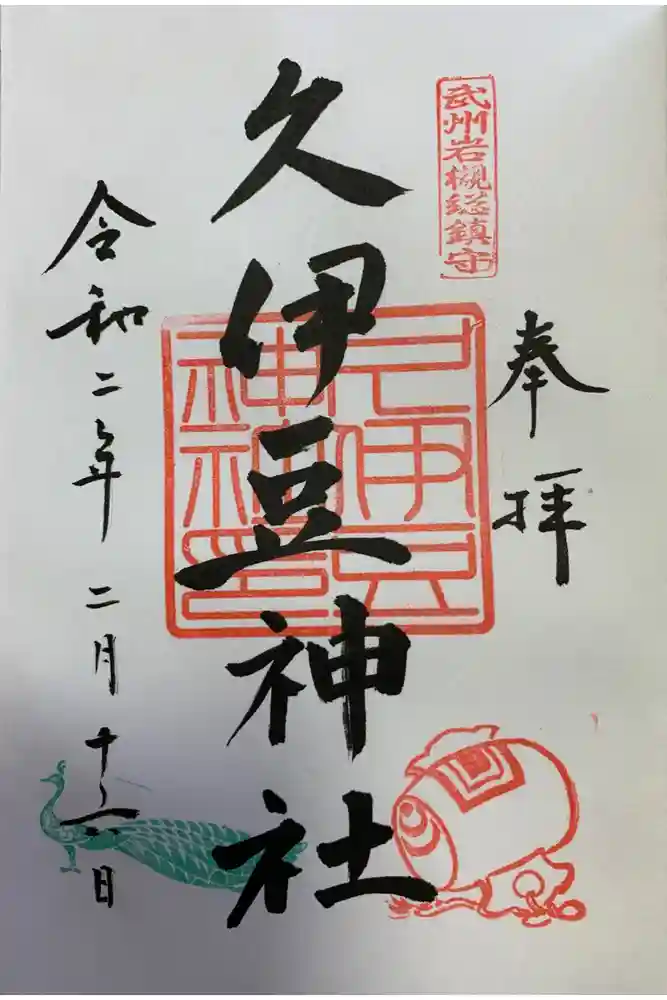 武州岩槻総鎮守
奉拝
久伊豆神社
久伊豆
神社印
令和二年二月十六日